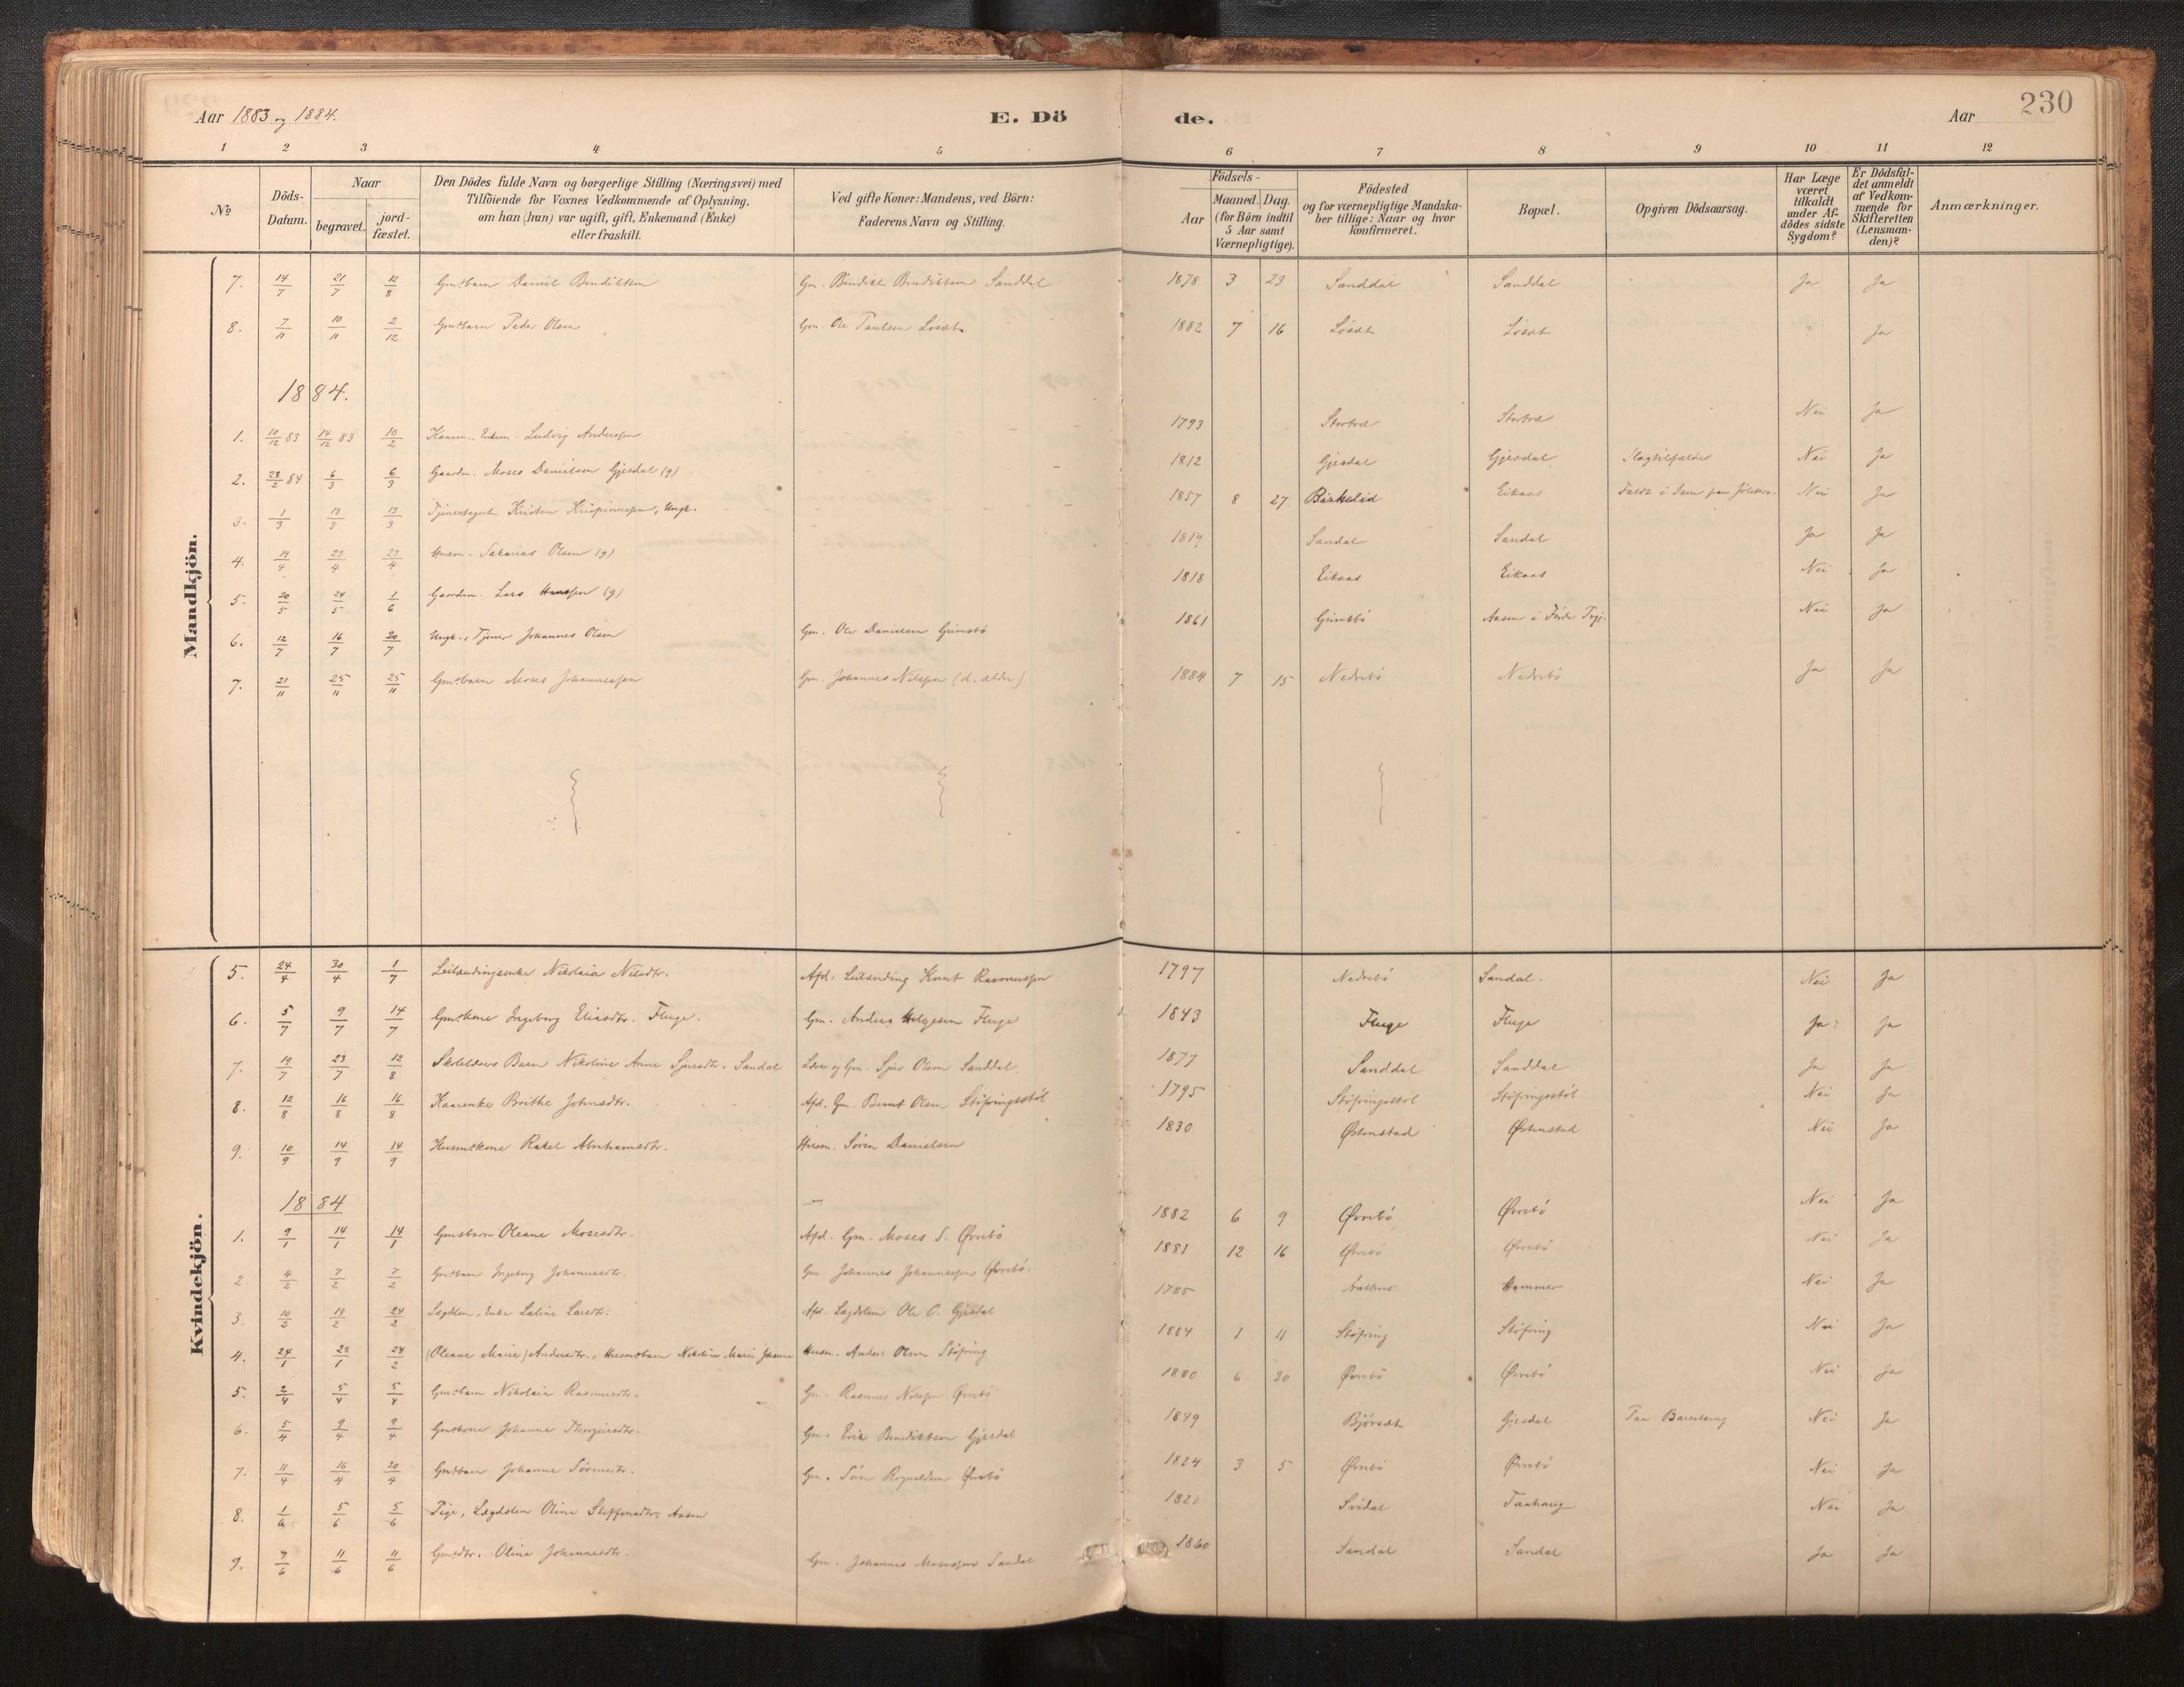 230
Aar 1883 og 1884.
E. Dö
de.
Aar
1 2 3 4 5 6 7 8 9 10 11 12
No
Döds-Datum.
Naar
begravet.
jord-fæstet.
Den Dödes fulde Navn og borgerlige Stilling (Næringsvei) med
Tilföiende for Voxnes Vedkommende af Oplysning.
om han (hun) var ugift, gift, Enkemand (Enke)
eller fraskilt.
Ved gifte Koner: Mandens, ved Börn:
Faderens Navn og Stilling.
Födsels-
Aar
Maaned. Dag.
(for Börn indtil
5 Aar samt
Værnepligtige).
Födested
og for værnepligtige Mandska-
ber tillige: Naar og hvor
konfirmeret.
Bopæl.
Opgiven Dödsaarsag.
Har Læge
været
tilkaldt
under Af-
dödes sidste
Sygdom?
Er Dödsfal-
det anmeldt
af Vedkom-
mende for
Skifteretten
(Lensman-
den)?
Anmærkninger.
Mandkjön.
7. 14/7 21/7 12/8 Gmsbarn Daniel Bendiktsen Gm. Bendikt Bendiktsen Sanddal 1878 3 23 Sanddal Sanddal Ja Ja
8. 7/11 10/11 2/12 Gmsbarn Peder Olsen Gm. Ole Paulsen Løsæt 1882 7 16 Løsæt Løsæt Ja
1884.
1. 10/12 83 14/12 83 10/2 Ludvig Andersen 1793 Nei Ja
2. 28/2 84 6/3 6/3 Gaardm. Moses Danielsen Gjesdal (g) 1812 Gjesdal Gjesdal Slagtilfælde Nei Ja
3. 1/3 13/3 13/3 Kristen Krispinussen, Ungk. 1857 8 27. Birkelid Eikaas Nei Ja
4. 19/4 23/4 23/4 Husm. Sakarias Olsen (g) 1819 Sandal Sandal Ja Ja
5. 20/5 24/5 1/6 Gaardm. Lars Hanssen (g) 1818 Eikaas Eikaas Nei Ja
6. 12/7 16/7 20/7 Ungk., Tjener Johannes Olsen Gm. Ole Danielsen Grimsbö 1861 Grimsbö Aasen i Förde Prgj. Nei Ja
7. 21/11 25/11 25/11 Gmsbarn Moses Johannessen Gm. Johannes Nilssen (d. ældre) 1884 7 15 Nedrebö Nedrebö Ja Ja
Kvindekjön.
5. 24/4 30/4 1/7 Leilændingsenke Nikolaia Nilsdtr. Afd. Leilænding Knut Rasmussen 1797 Nedrebö Sandal. Nei Ja
6. 5/7 9/7 14/7 Gmskone Ingeborg Eliasdtr. Fluge. Gm. Anders Helgesen Fluge 1843 Fluge Fluge Ja Ja
7. 19/7 23/7 12/8 Skolelærers Barn Nikoline Anne Sjursdtr. Sandal Lærer og Gm. Sjur Olsen Sanddal. 1877 Sanddal Sanddal Ja Ja
8. 12/8 16/8 16/8 Kaarenke Brithe Johnsdtr. Afd. Gm. Bernt Olsen Støfringsstøl 1795 Støfringsstøl Støfringsstøl Nei Ja
9. 10/9 14/9 14/9 Husmskone Rakel Abrahamsdtr. Husm. Søren Danielsen 1830 Østenstad Østenstad Nei Ja
1884
1. 9/1 14/1 14/1 Gmsbarn Oleane Mosesdtr. Afd. Gm. Moses S. Ørrebö 1882 6 9 Ørrebö Ørrebö Nei Ja
2 4/2 7/2 7/2 Gmsbarn Ingeborg Johannesdtr. Gm. Johannes Johannessen Ørrebö. 1881 12 16 Ørrebö Ørrebö Nei Ja
3. 10/2 13/2 24/2 Lægdslem, Enke Larsdtr. Afd. Lægdslem Ole O. Gjesdal 1785 Aalhus Hammer Nei Ja
4. 24/1 28/1 24/2 (Oleane Marie) Andersdtr., Husmsbarn Nikoline Marie Husm. Anders Olsen Støfring 1884 1 11 Støfring Støfring Nei Ja
5. 2/4 5/4 5/4 Gmsbarn Nikolaia Rasmusdtr. Gm. Rasmus Nilssen Ørrebö 1880 6 30 Ørrebö Ørrebö Nei Ja
6. 5/4 9/4 9/4 Gmskone Johanne Gm. Erik Bendiktsen Gjesdal 1849 Bjørsæt Gjesdal Paa Barselseng Nei Ja
7. 11/4 16/4 20/4 Gmsbarn Johanne Sørensdtr. Gm. Søren Ørrebö 1884 3 5 Ørrebö Ørrebö Nei Ja
8. 1/6 5/6 5/6 Pige, Lægdslem Oline Steffensdtr. Aasen 1820 Svidal Nei Ja
9. 7/6 11/6 11/6 Gmsdtr. Oline Johannesdtr. Gm. Johannes Mosessen Sandal 1860 Sandal Sandal Ja Ja